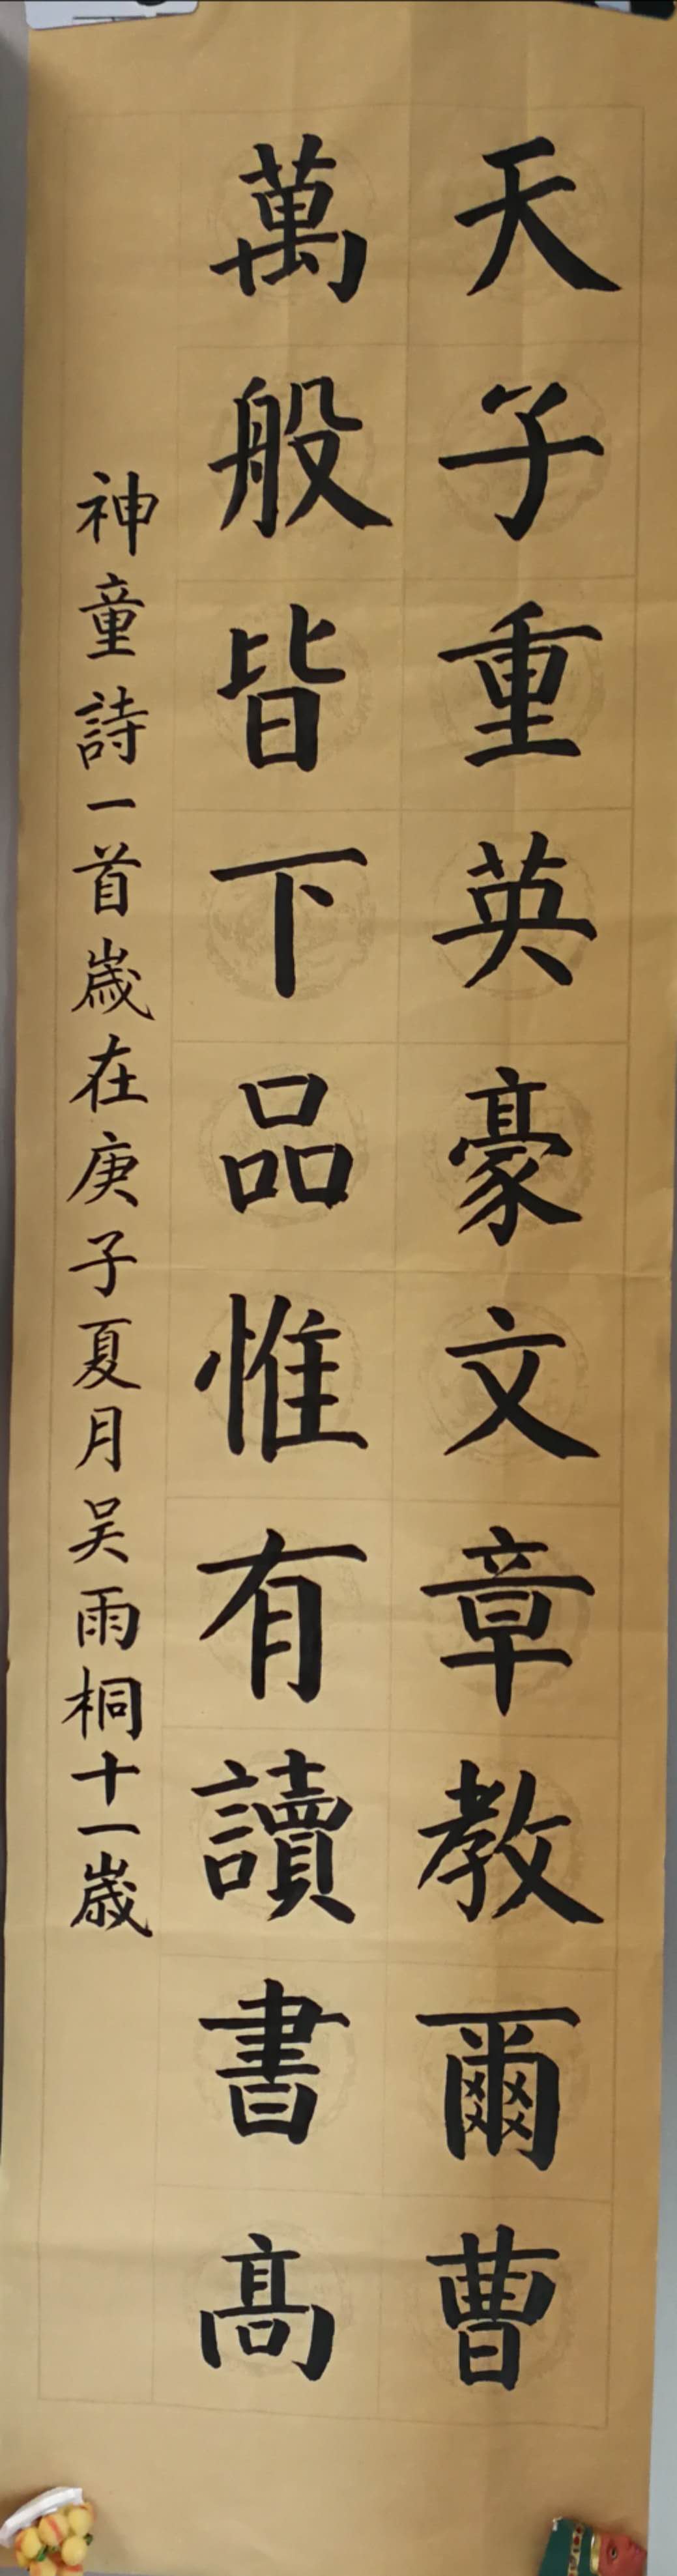 天子重英豪文章教爾曹
萬般皆下品惟有讀書高
神童詩一首歲在庚子夏月吴雨桐十一歲